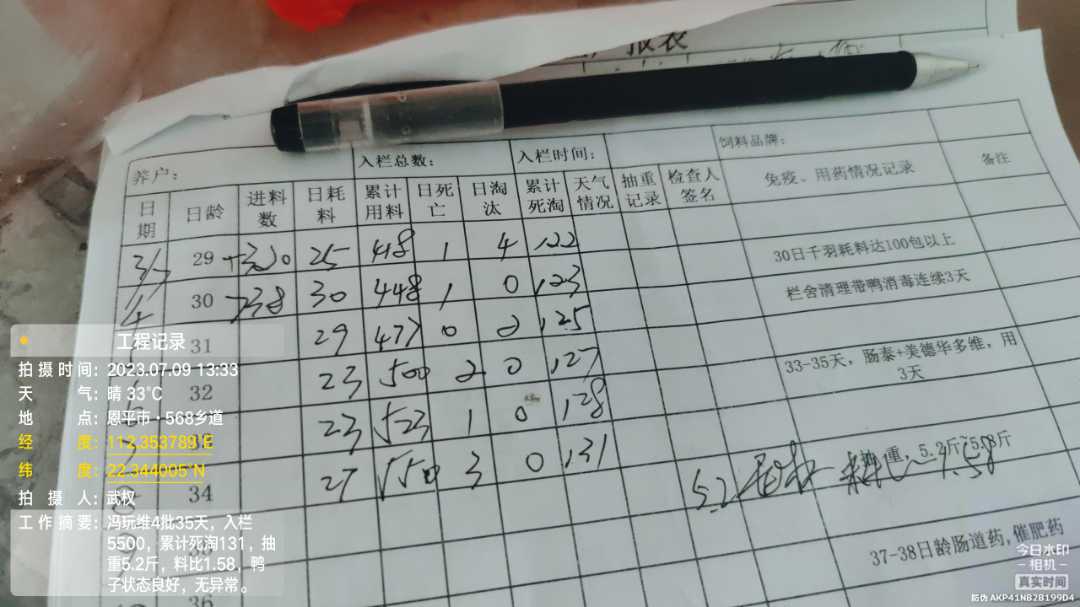 报表
养户：
入栏总数：
入栏时间：
饲料品牌：
日期 日龄 进料数 日耗料 累计用料 日死亡 日淘汰 累计死淘 天气情况 抽重记录 检查人签名 免疫、用药情况记录 备注
29 25 418 1 4 122 30日千羽耗料达100包以上
30 238 30 448 1 0 123 栏舍清理带鸭消毒连续3天
31 29 477 0 2 125
32 23 500 2 0 127 33-35天，肠泰+美德华多维，用3天
23 523 1 0 128
34 27 550 3 0 131 5.2斤~5.8斤
5.2 1.58
37-38日龄肠道药，催肥药
36
工程记录
拍摄时间：2023.07.09 13:33
天气：晴 33℃
地点：恩平市·568乡道
经度：112.353789°E
纬度：22.344005°N
拍摄人：武权
工作摘要：冯玩维4批35天，入栏
5500，累计死淘131，抽
重5.2斤，料比1.58，鸭
子状态良好，无异常。
今日水印
相机
真实时间
防伪 AKP41NB2B199D4